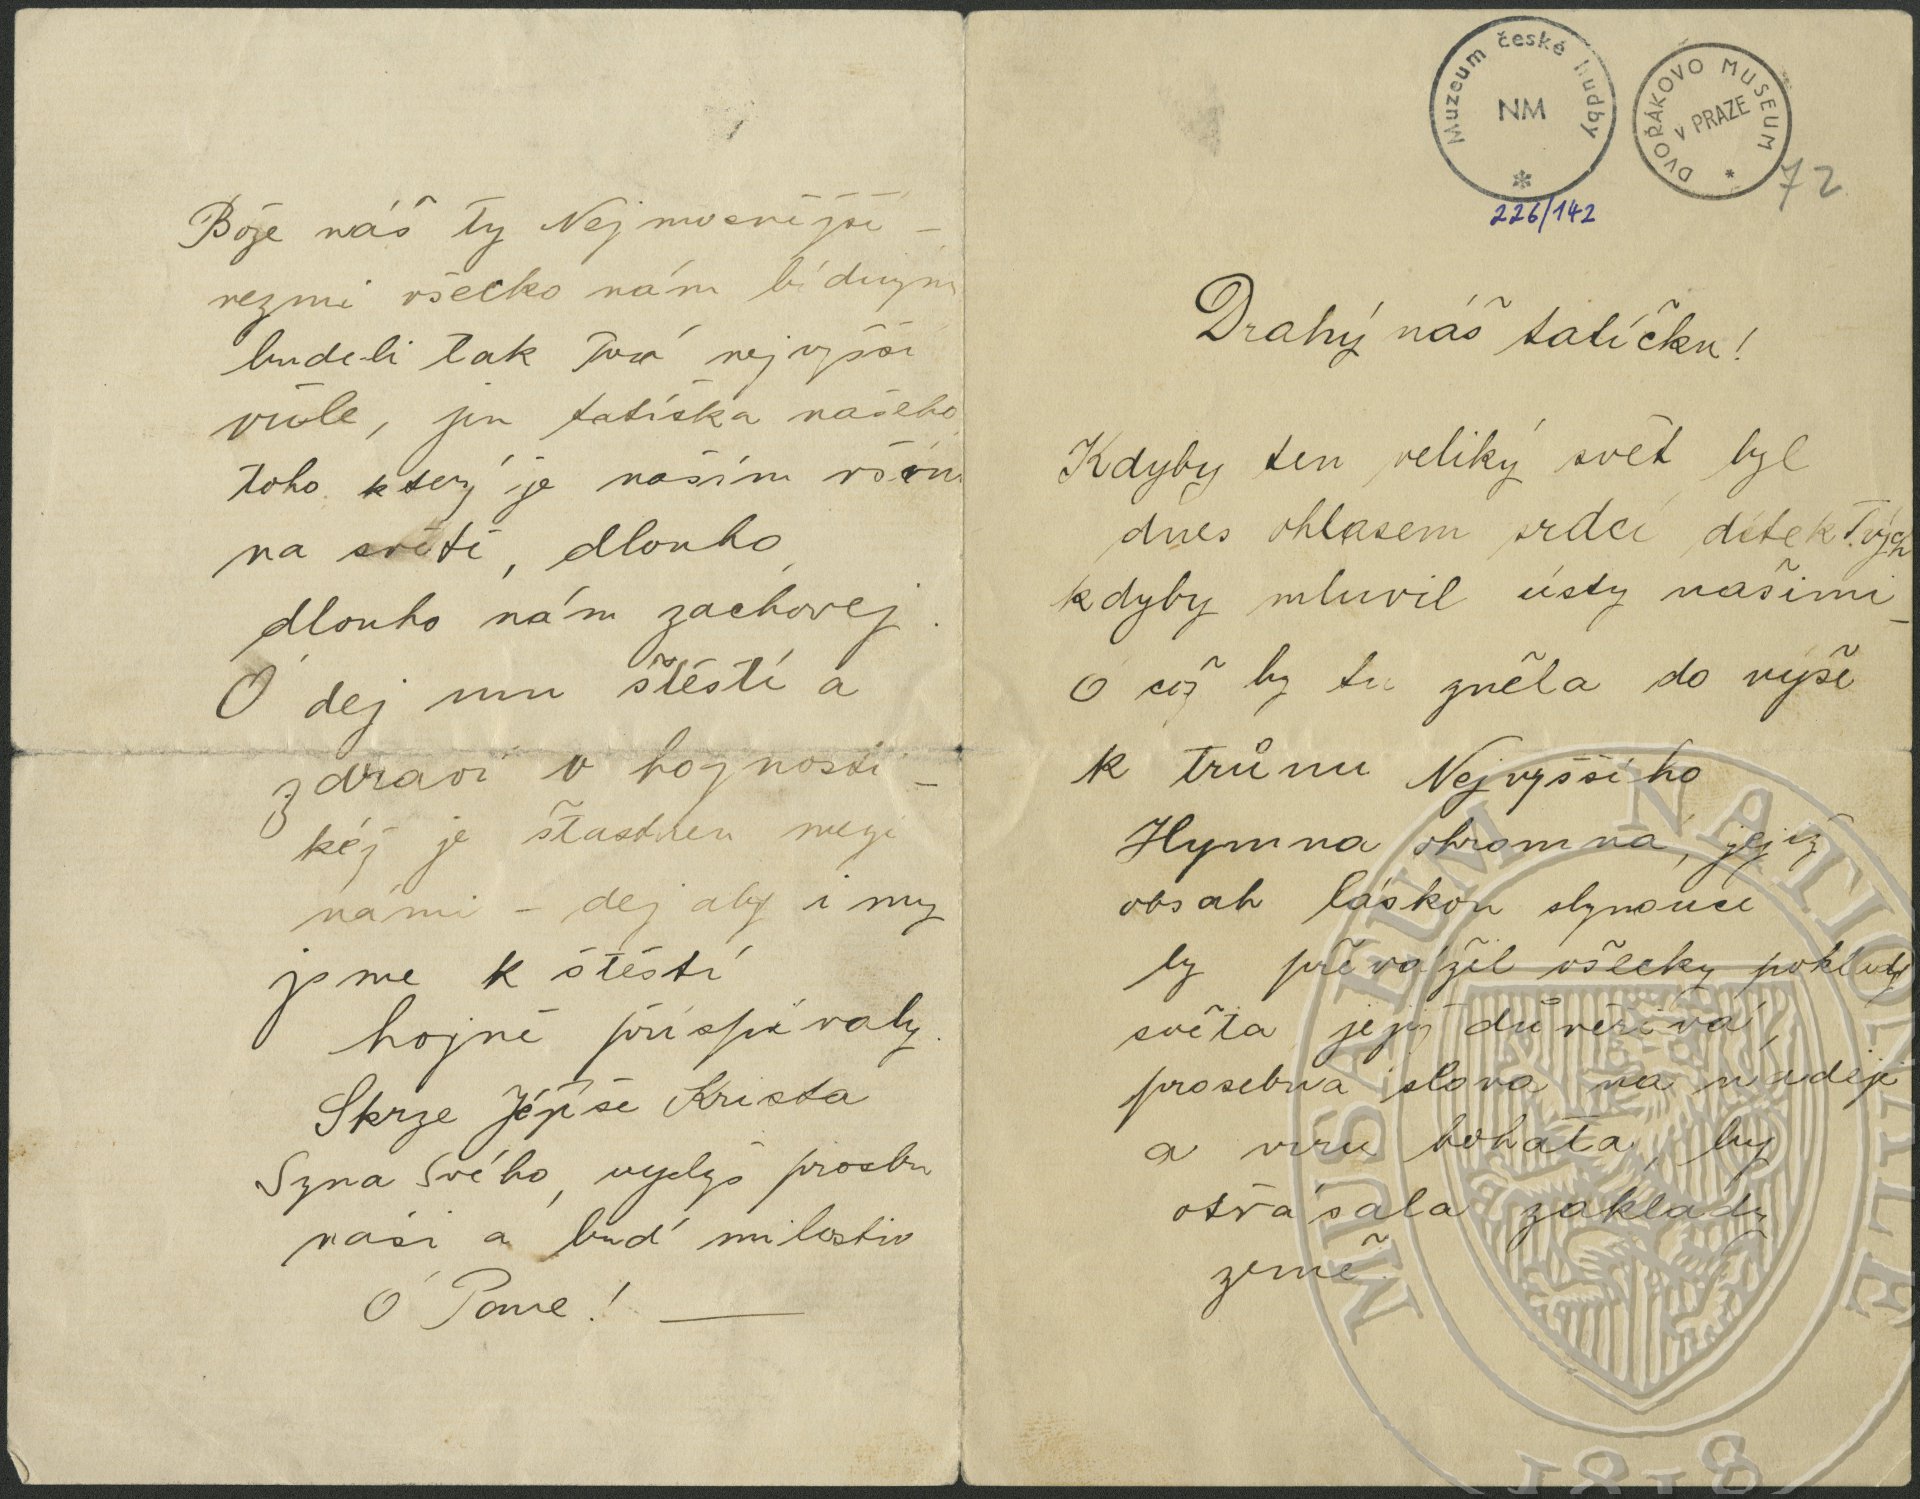 Bože náš Ty Nejmocnější –
vezmi všecko nám bídným
bude-li tak Tvá nejvyšší
vůle, jen tatíčka našeho
toho který je naším vším
na světě, dlouho,
dlouho nám zachovej.
Ó dej mu štěstí a
zdraví v hojnosti –
kéž je šťasten mezi
námi – dej aby i my
jsme k štěstí
hojně přispívaly.
Skrze Ježíše Krista
Syna Svého, vyslyš prosbu
naši a buď milostiv
Ó Pane! —
Muzeum české hudby
NM
*
226/142
DVOŘÁKOVO MUSEUM
v PRAZE
*
72
Drahý náš tatíčku!
Kdyby ten veliký svět byl
dnes ohlasem srdcí dítek Tvých
kdyby mluvil ústy našimi –
Ó což by tu zněla do výše
k trůnu Nejvyššího
Hymna ohromná, jejíž
obsah láskou slynoucí
by převážil všecky poklady
světa jejíž důvěřivá,
prosebná slova na naděje
a víru bohatá, by
otřásala základy
země.
MUSAEUM NATIONALE
1818